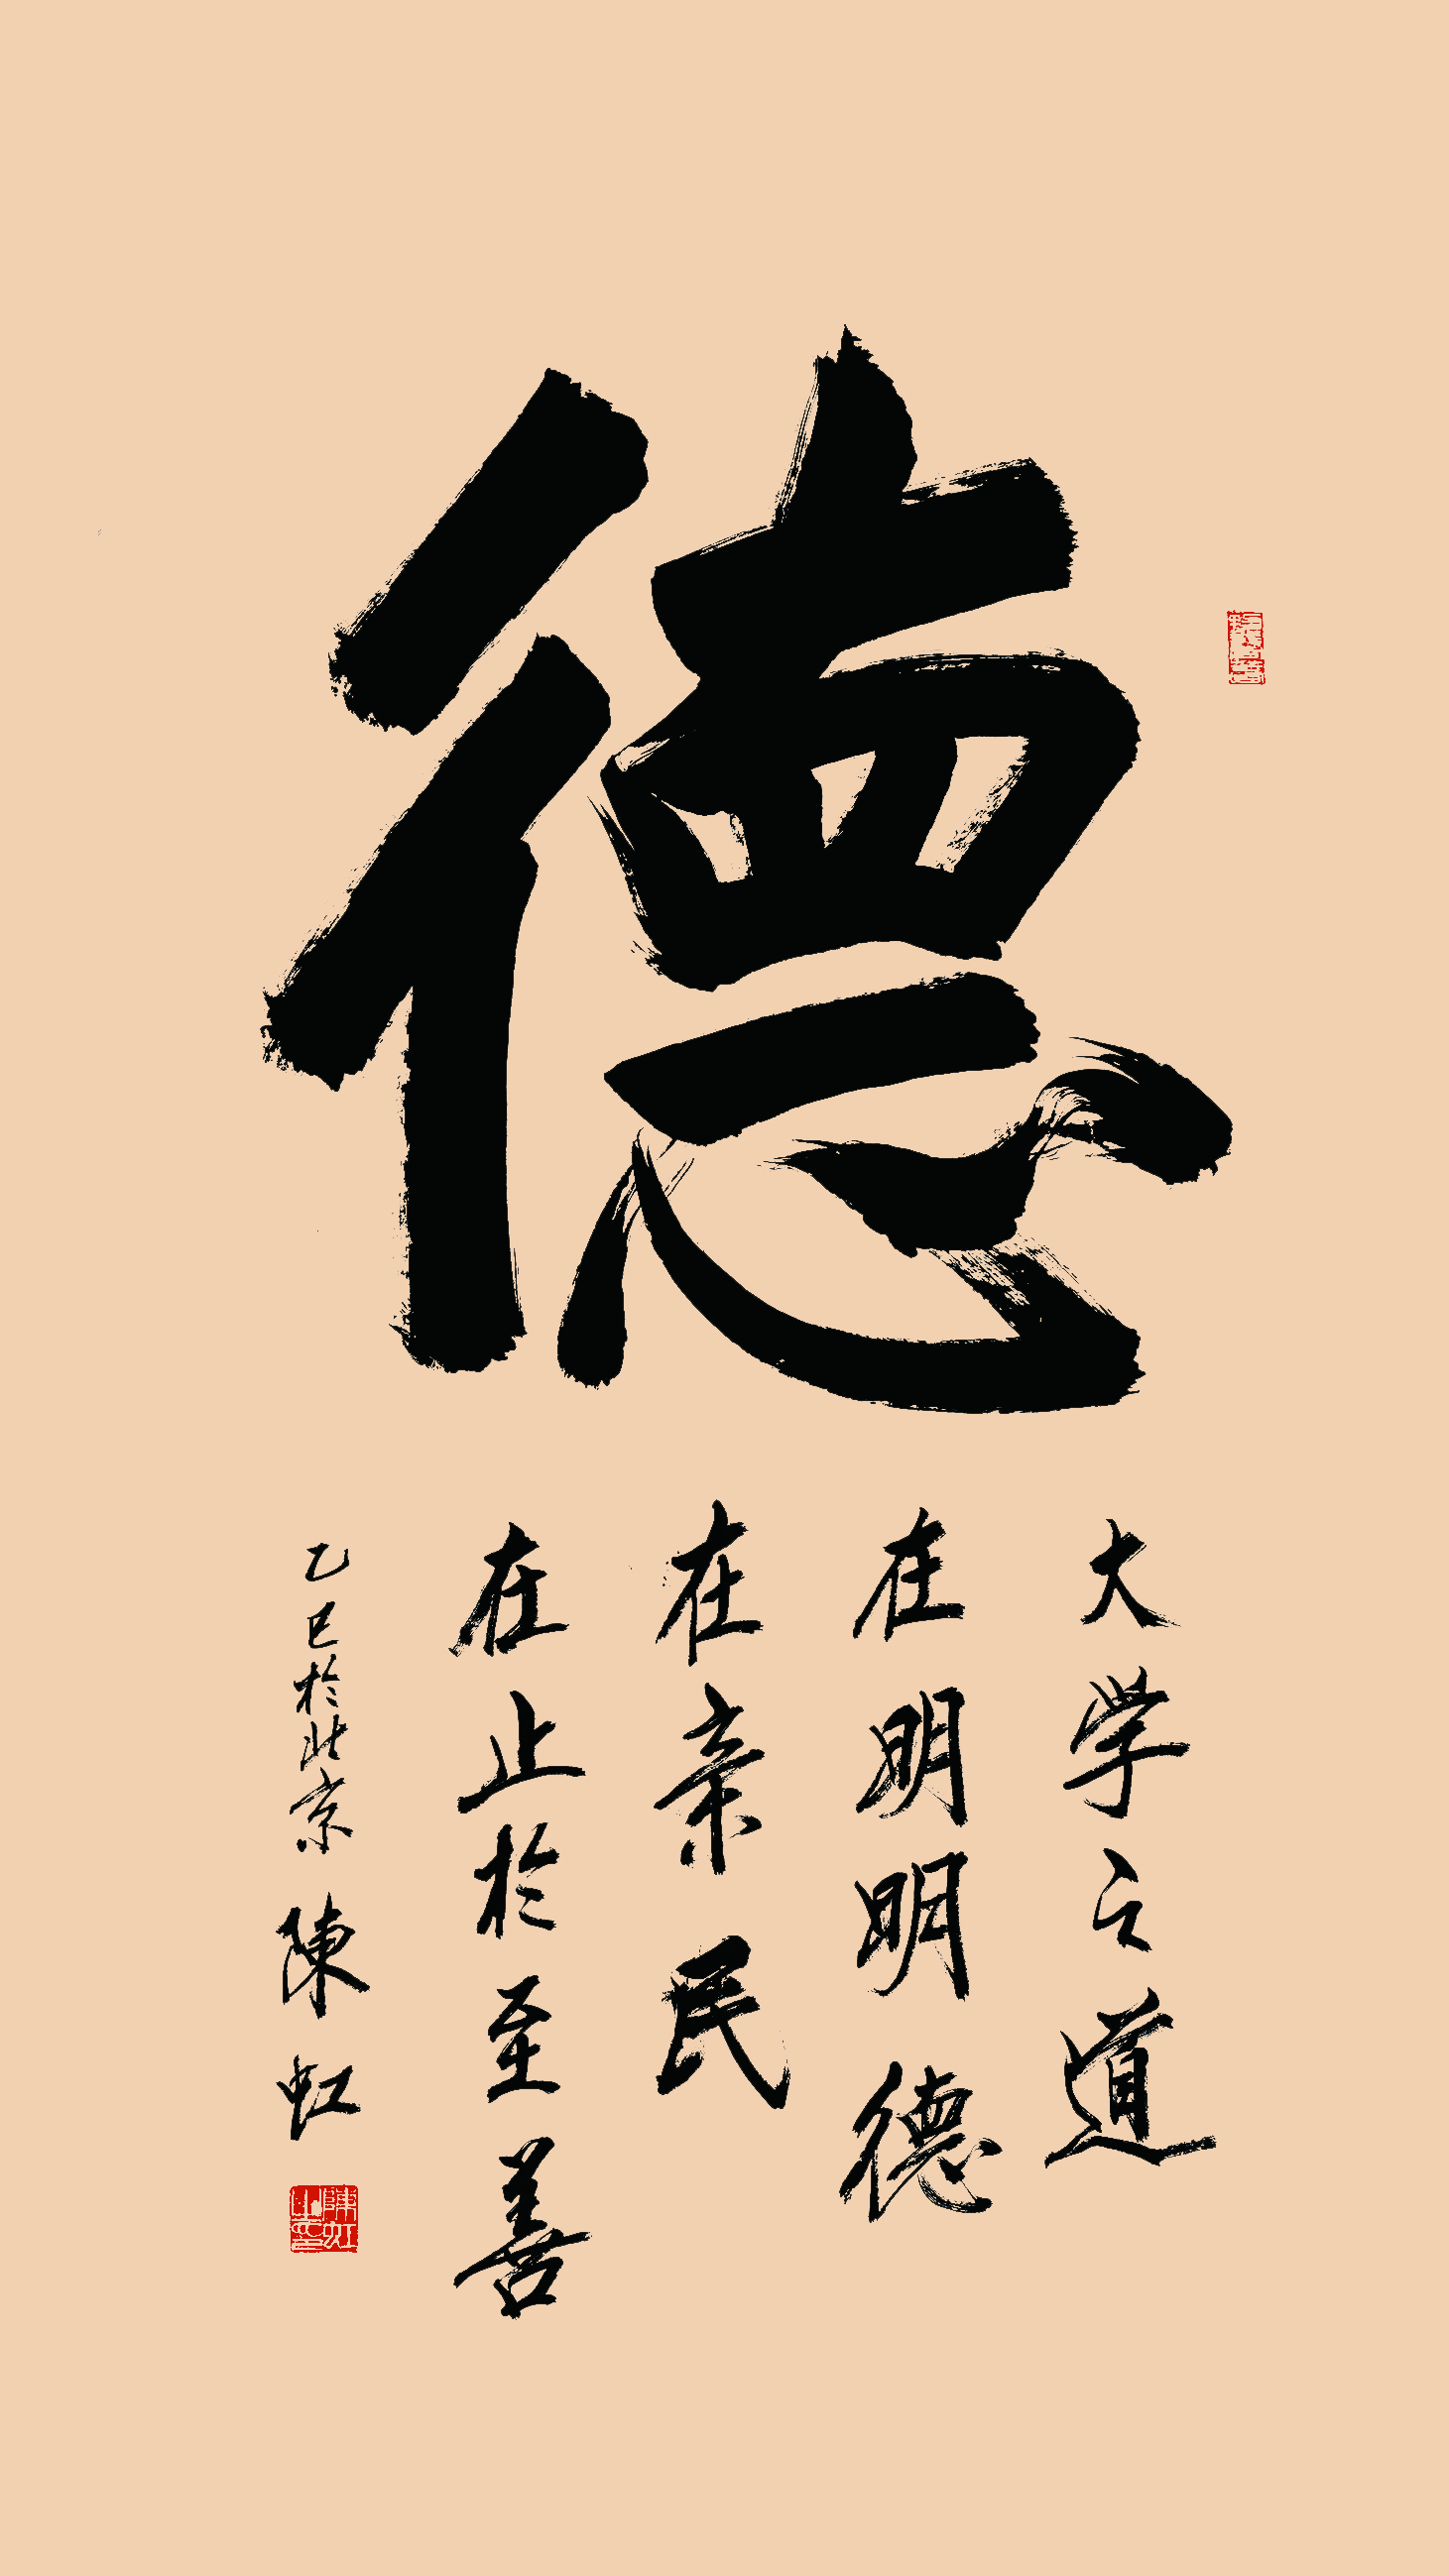 德
大学之道
在明明德
在亲民
在止於至善
乙巳於北京 陳虹
陳虹之印